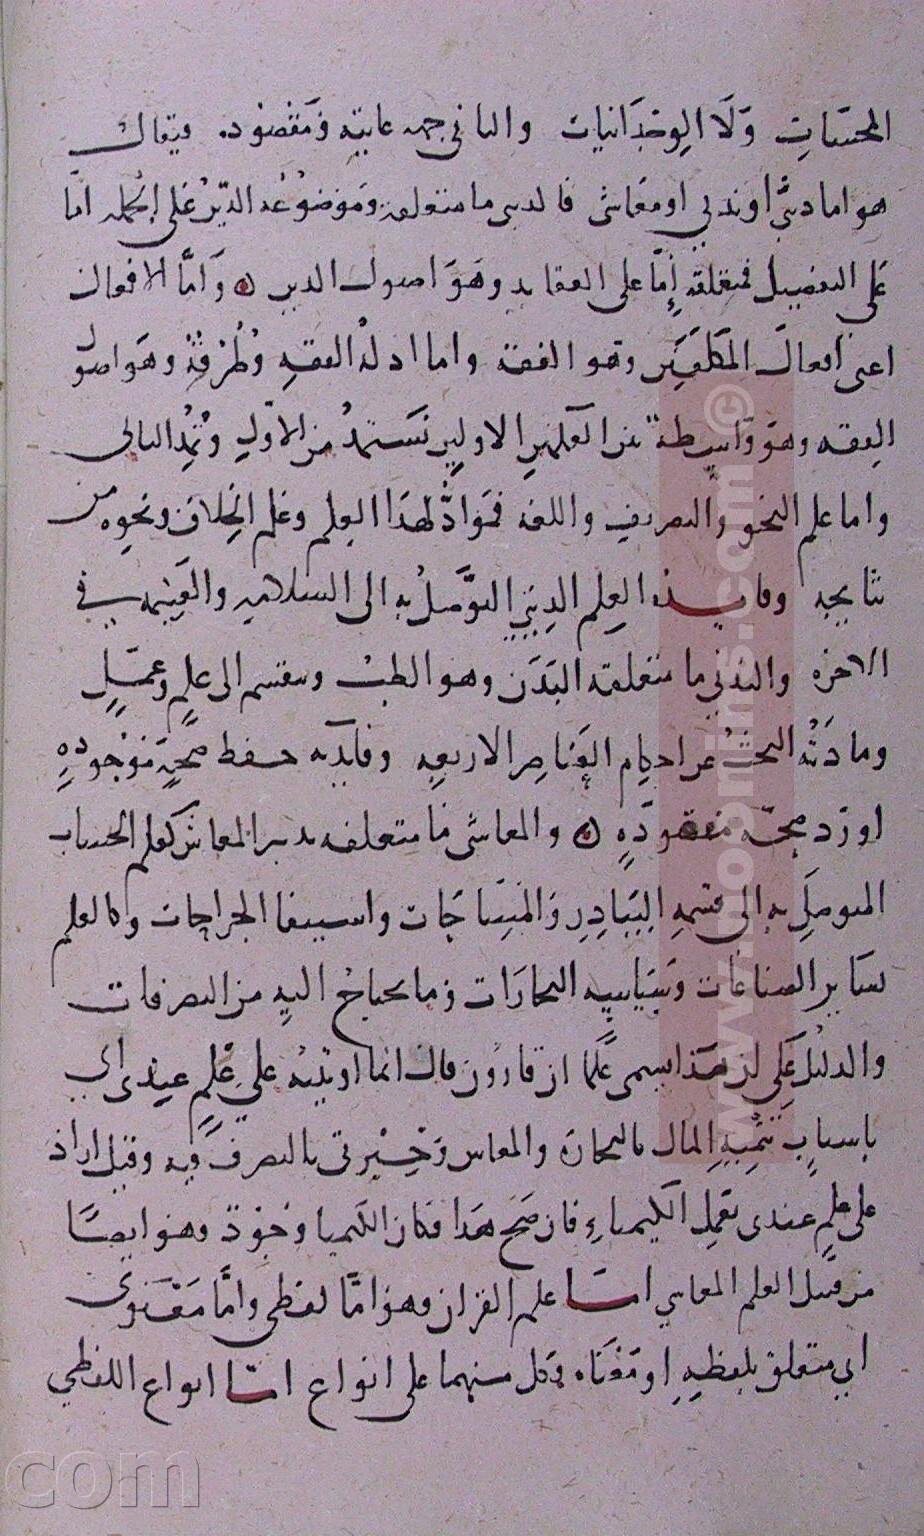 المحسَّاتِ وَلَا الوِجْدَانيات والثانى جهه غايته وَمَقصُوده. فيقال
هو اما دينىٌّ او بدنى او معَاشى فالدينى ما متعلقه ومَوضوُعُه الدّينُ على الجمله اما
عَلى التفصيل فمتعلقه إمَّا على العقايد وهَوَ اصول الدين ه وَامَّا الافعال
اعنى افعالَ المكلفين وهو الفقه واما ادلهُ الفقهِ وطُرقُهُ وهَوَ اصول
الفِقه وهو وَاسِطة بين العلمينِ الاولينِ تسَتمدُّ من الاوّلِ وتُمِدُّ الثانى
واما علم النحو والتصريف واللغه فمَوَادُّ لهذا العِلم وعلم الخِلاف ونحوه من
نتايجه وفايده العِلم الدينى التوَّصلُ به الى السَّلامه والغنيمه فى
الاخره والبَدَنى ما متعلقه البَدَن وهو الطب وينقسم الى علمٍ وعمَلٍ
ومادَتُه البحثُ عن احكام العَناصِر الاربعه وفايدته حفظ صحَّهٍ مَوْجُودهٍ
او رَد صحّه مَفقوُدَهٍ ه والمعاشى ما متعلقه تدبير المعاش كعلم الحساب
المتوصَلِ به الى قسمهِ البَيَادِرِ وَالمِسَاحَات واستيفا الخراجات وكالعلم
بسَاير الصناعَات وَسِيَاسه التجارَات وَما يحتاجُ اليهِ من التصرفات
والدليْل على ان هَذا يسمى علمًا ان قارُون قال انما اوتيتُه على عِلمٍ عندى اى
باسبابِ تنميهِ المال بالتجاره والمعاش وَخِبْرتى بالتصرف فيه وقيل اراد
على علمٍ عندى بعَمل الكيمياءِ فان صَح هَذا فكان الكيميا موجُودة وهو ايضًا
من قبيل العلم المعاشى امَّا علم القران فهو امَّا لفظى وامَّا مَعْنوى
اى متعلق بلفظهِ او مَعْنَاه وكل منهما على انواع امَّا انواع اللفظى
www.nosnins.com ©
com